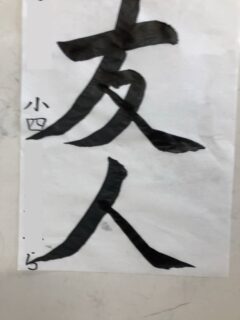 友人
小四